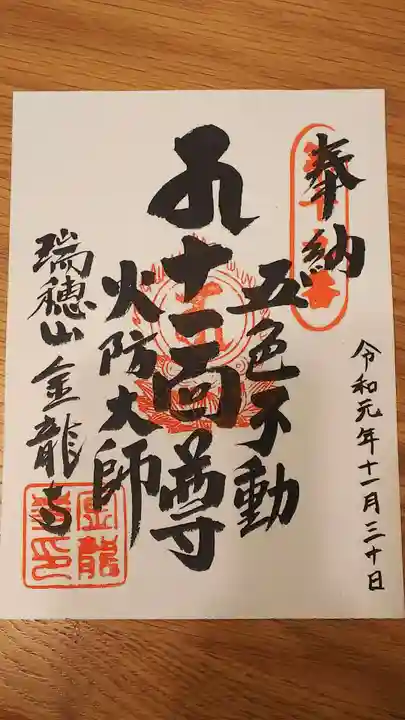 奉納
令和元年十一月三十日
五色不動
九十一面尊
火防大師
瑞穂山金龍寺
金龍寺印